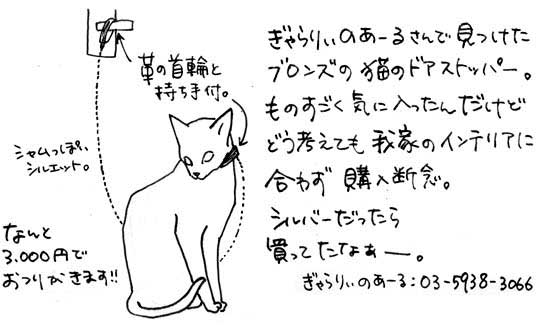 革の首輪と
持ち手付。
シャムっぽい
シルエット。
なんと
3.000円で
おつりがきます!!
ぎゃらりぃのあーるさんで見つけた
ブロンズの猫のドアストッパー。
ものすごく気に入ったんだけど
どう考えても我家のインテリアに
合わず購入断念。
シルバーだったら
買ってたなぁー。
ぎゃらりぃのあーる:03-5938-3066